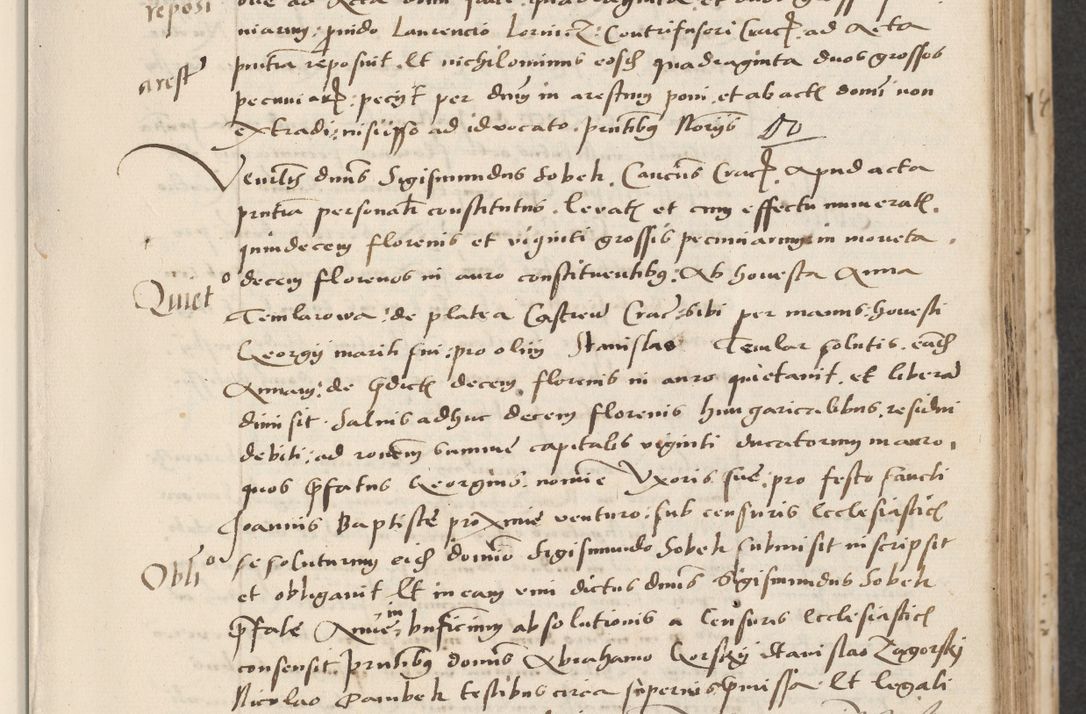 reposi
niarum, prouido Laurencio Lornicz Contrifusori Crac. ad Acta
arest
pntia reposuit. Et nichilominus eosd quadraginta duos grossos
pecuniar. peciit per dnm in arestum poni, et ab actis domi non
extradi, nisi ipso ad id vocato. pntibus Notariis
Venlis dnus Sigismundus Sobek, Cancius Crac. Apud acta
pntia personalr constitutus. levatis et cum effectu numeratis.
quindecem florenis et viginti grossis pecuniarum in moneta
decem florenos in auro constituentibus. Ab honesta Anna
Quiet
Temlarowa de platea Castren Crac. sibi per manus honesti
Georgy mariti sui, pro olim Stanislao Temlar solutis. eandem
Annam, de pdictis decem florenis in auro quietavit, et libera
dimisit. Salvis adhuc decem florenis hungaricalibus, residui
debiti, ad ronem summe capitalis viginti ducatorum in auro.
quos pfatus Georgius, nomine Vxoris sue, pro festo sancti
Joannis Baptiste proxime venturo, sub censuris Ecclesiasticis
Oblio
se soluturum eidem domino Sigismundo Sobek submisit inscripsit
et obligavit Et in eam vim dictus dnus Sigismundus Sobek
pfate Anne, in bnficium absolutionis a Censuris Ecclesiasticis
consensit. pntibus domnis Abrahamo Gorsky Stanislao Zagorsky
Nicolao Dambek testibus circa super premissa Et legali